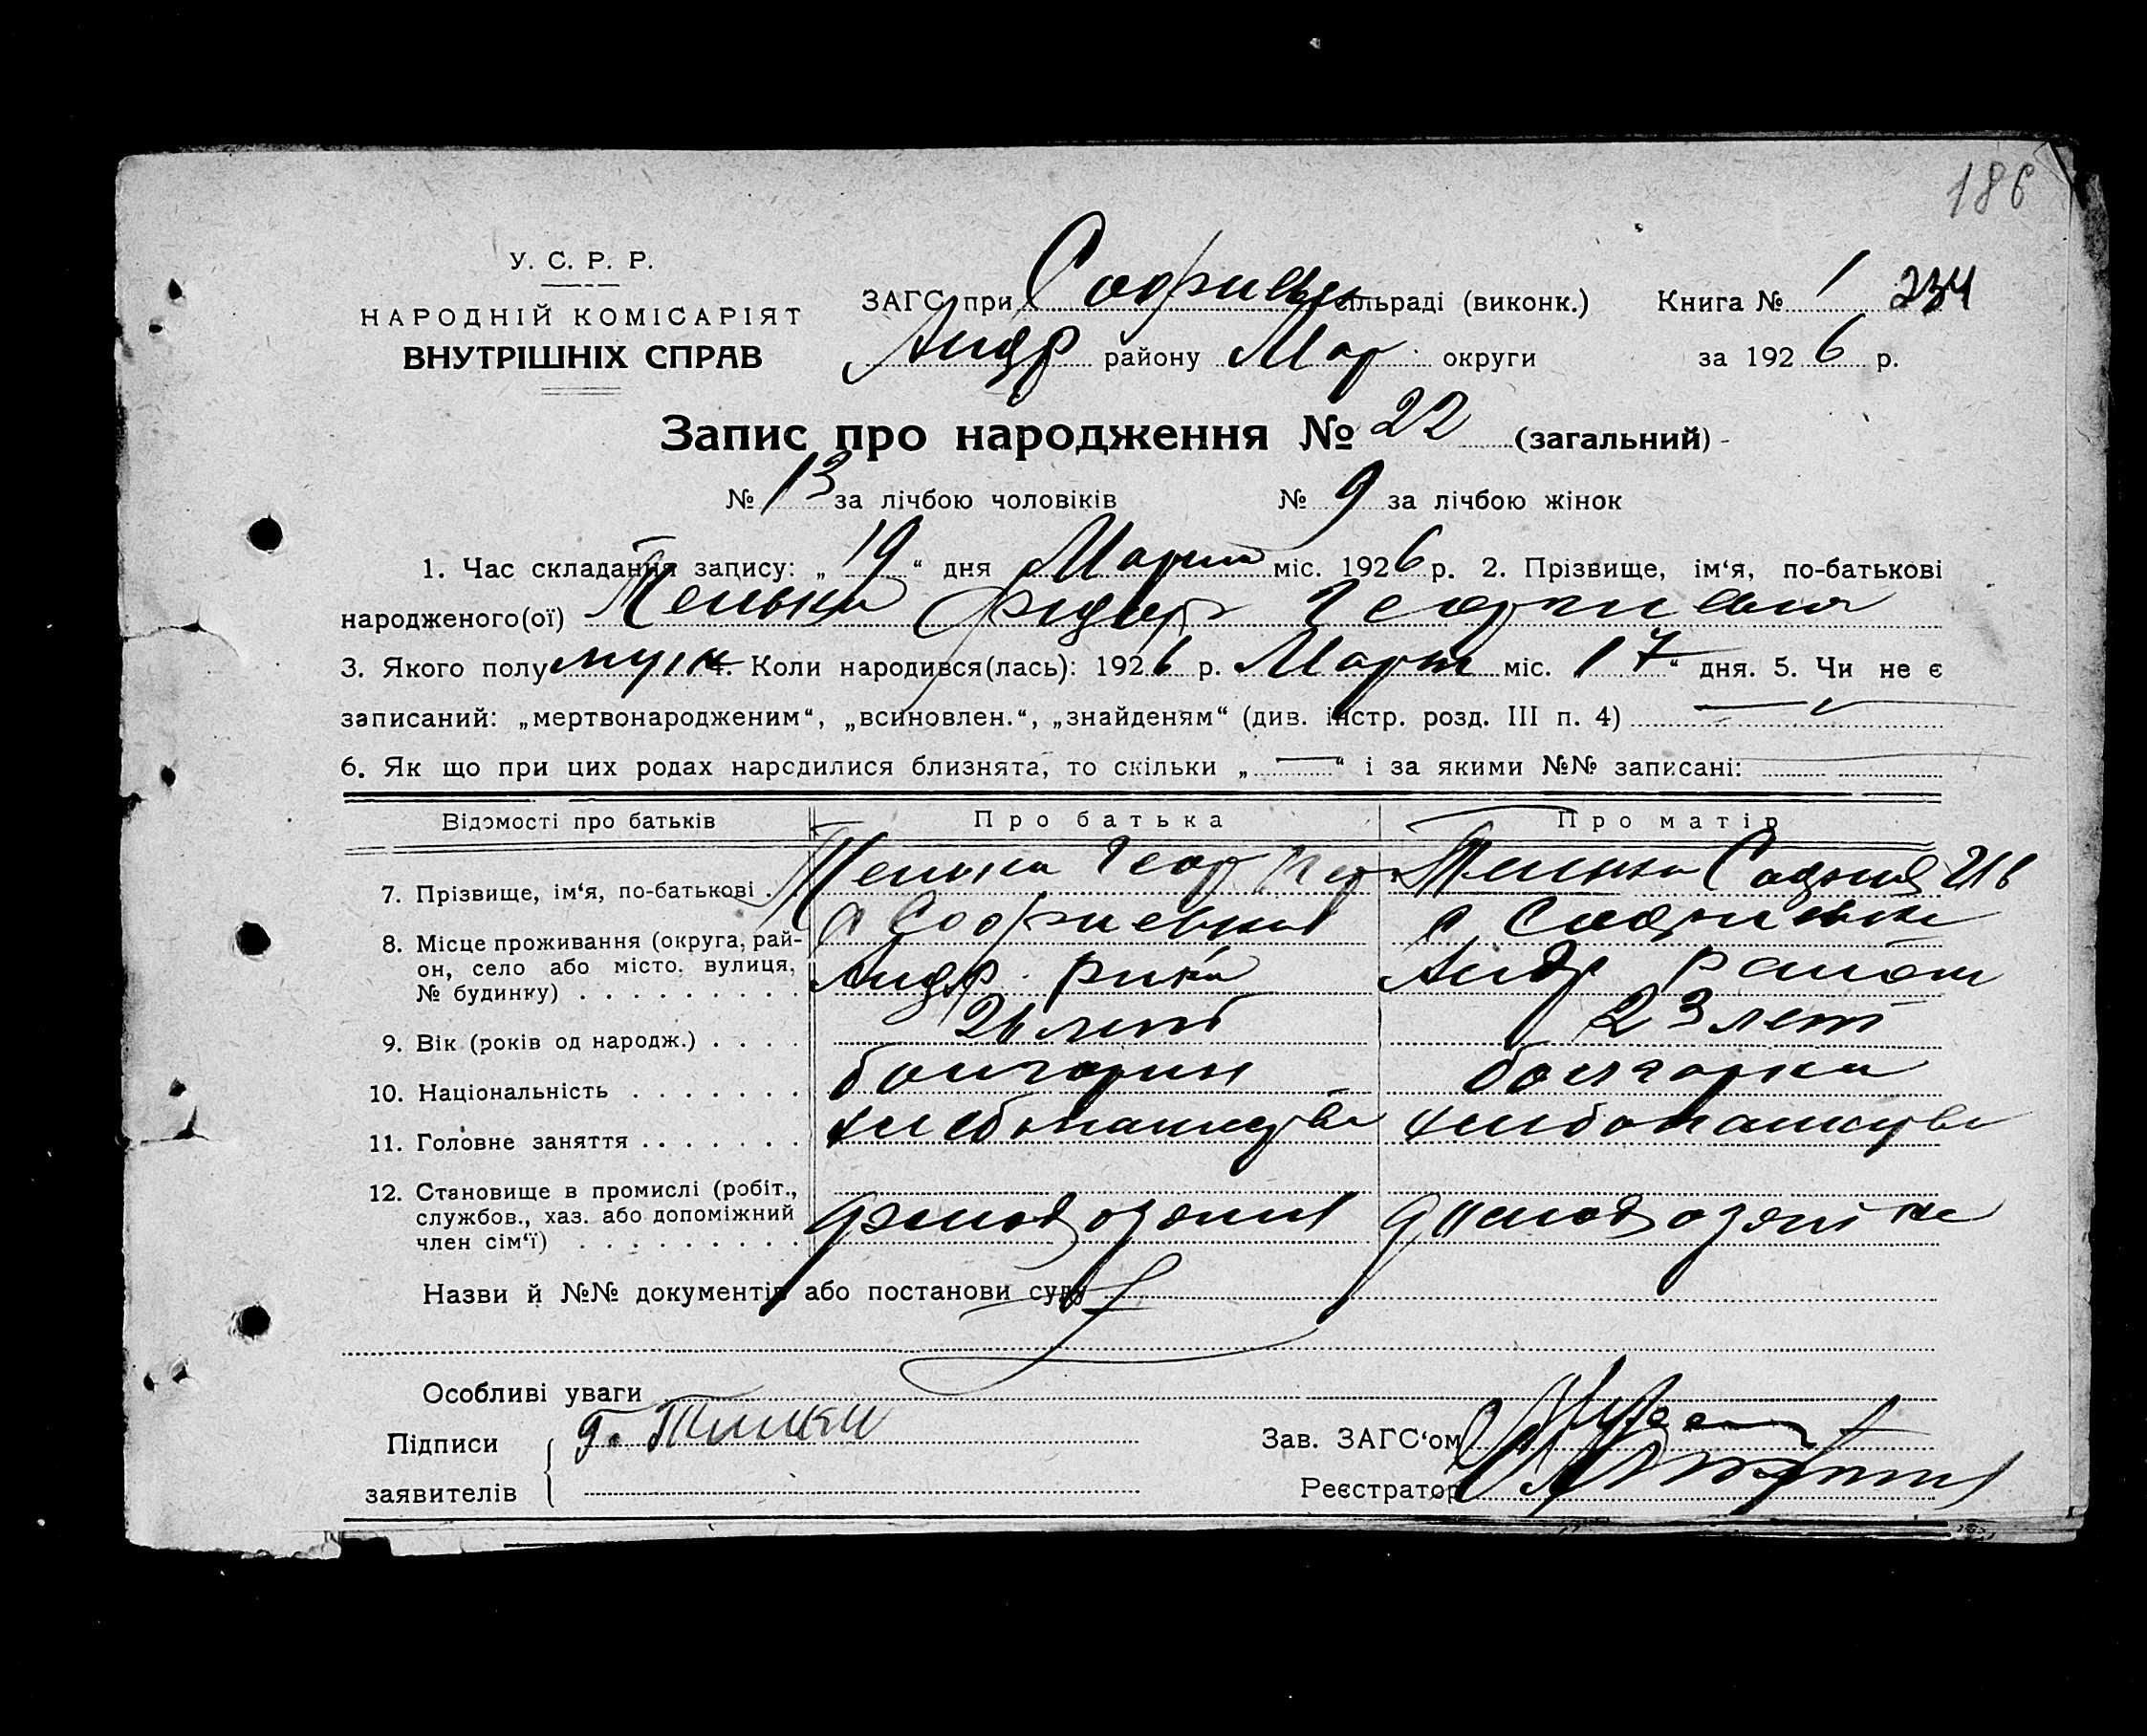 186
У. С. Р. Р.
НАРОДНІЙ КОМІСАРІЯТ
ВНУТРІШНІХ СПРАВ
ЗАГС при Софиевск сільраді (виконк.) Книга № 1 234
Андр району Мар. округи за 1926 р.
Запис про народження № 22 (загальний)
№ 13 за лічбою чоловіків № 9 за лічбою жінок
1. Час складання запису: „19“ дня Марта міс. 1926 р. 2. Прізвище, ім‘я, по-батькові
народженого(ої) Тенька Фидор
3. Якого полу муж 4. Коли народився(лась): 1926 р. Март міс. 17“ дня. 5. Чи не є
записаний: „мертвонародженим“, „всиновлен.“, „знайденям“ (див. інстр. розд. III п. 4)
6. Як що при цих родах народилися близнята, то скільки „—“ і за якими №№ записані:
Відомості про батьків Про батька Про матір
7. Прізвище, ім‘я, по-батькові . Тенька Георг Тенька София
8. Місце проживання (округа, рай- с Софиевка с Софиевка
он, село або місто, вулиця, Андр. Андр район
№ будинку) . . . . . . . . .
9. Вік (років од народж.) . . . . 26 лет 23 лет
10. Національність . . . . . . . болгарин болгарка
11. Головне заняття . . . . . . . хлебопашество хлебопашество
12. Становище в промислі (робіт.,
службов., хаз. або допоміжний домохозяин домохозяйка
член сім‘ї) . . . . . . . . .
Назви й №№ документів або постанови суду
Особливі уваги
Підписи Зав. ЗАГС‘ом
заявителів Реєстратор